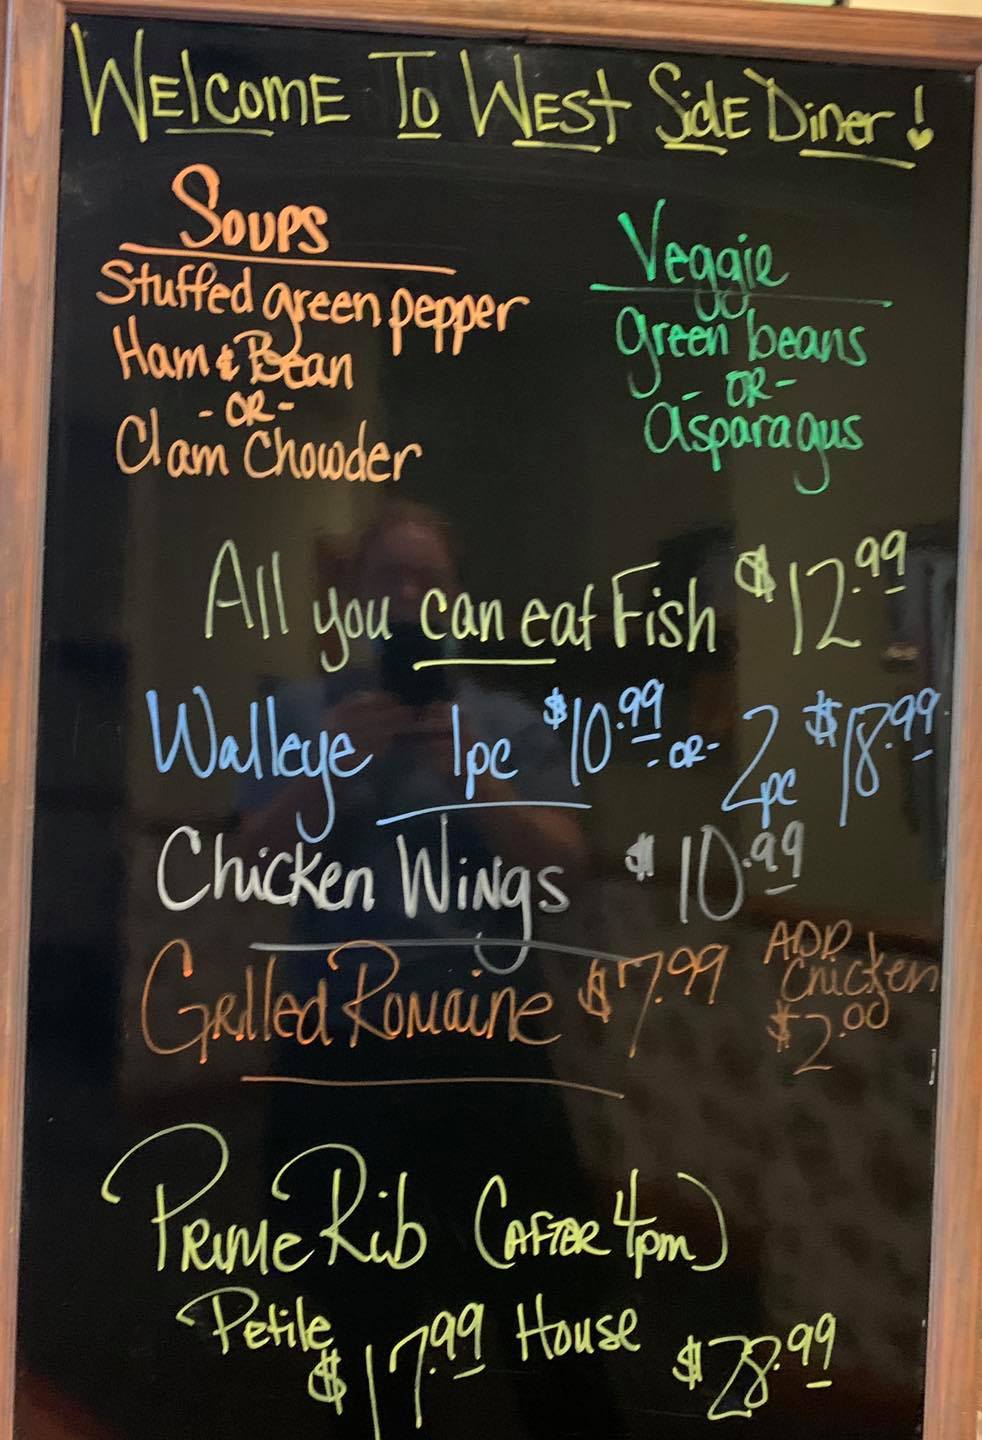 WElcomE To WEST SidE Diner!
Soups
Stuffed green pepper
Ham & Bean
- OR -
Clam Chowder
Veggie
green beans
- OR -
asparagus
All you can eat Fish $12.99
Walleye 1pc $10.99 - OR - 2pc $18.99
Chicken Wings $10.99
Grilled Romaine $7.99 ADD Chicken $2.00
Prime Rib (AFTER 4pm)
Petite $17.99 House $28.99